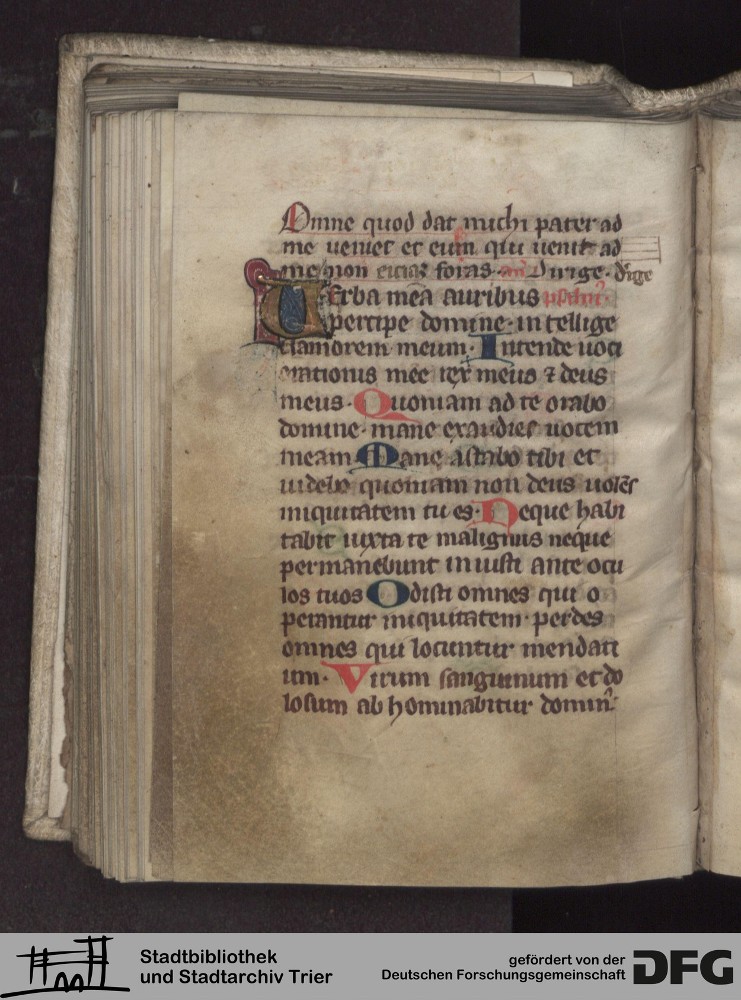 Omne quod dat michi pater ad
me ueniet et eum qui uenit ad
me non eiciaꝫ foras. añ Dirige. dirige
Uerba mea auribus psalm̄.
percipe domine. intellige
clamorem meum. Intende uoci
orationis mee rex meus ⁊ deus
meus. Quoniam ad te orabo
domine. mane exaudies uocem
meam Mane astabo tibi et
uidebo quoniam non deus uolēs
iniquitatem tu es. Neque habi
tabit iuxta te malignus neque
permanebunt iniusti ante ocu
los tuos Odisti omnes qui o
perantur iniquitatem. perdes
omnes qui locuntur mendati
um. Virum sanguinum et do
losum abhominabitur dominꝯ.
Stadtbibliothek
und Stadtarchiv Trier
gefördert von der
Deutschen Forschungsgemeinschaft DFG